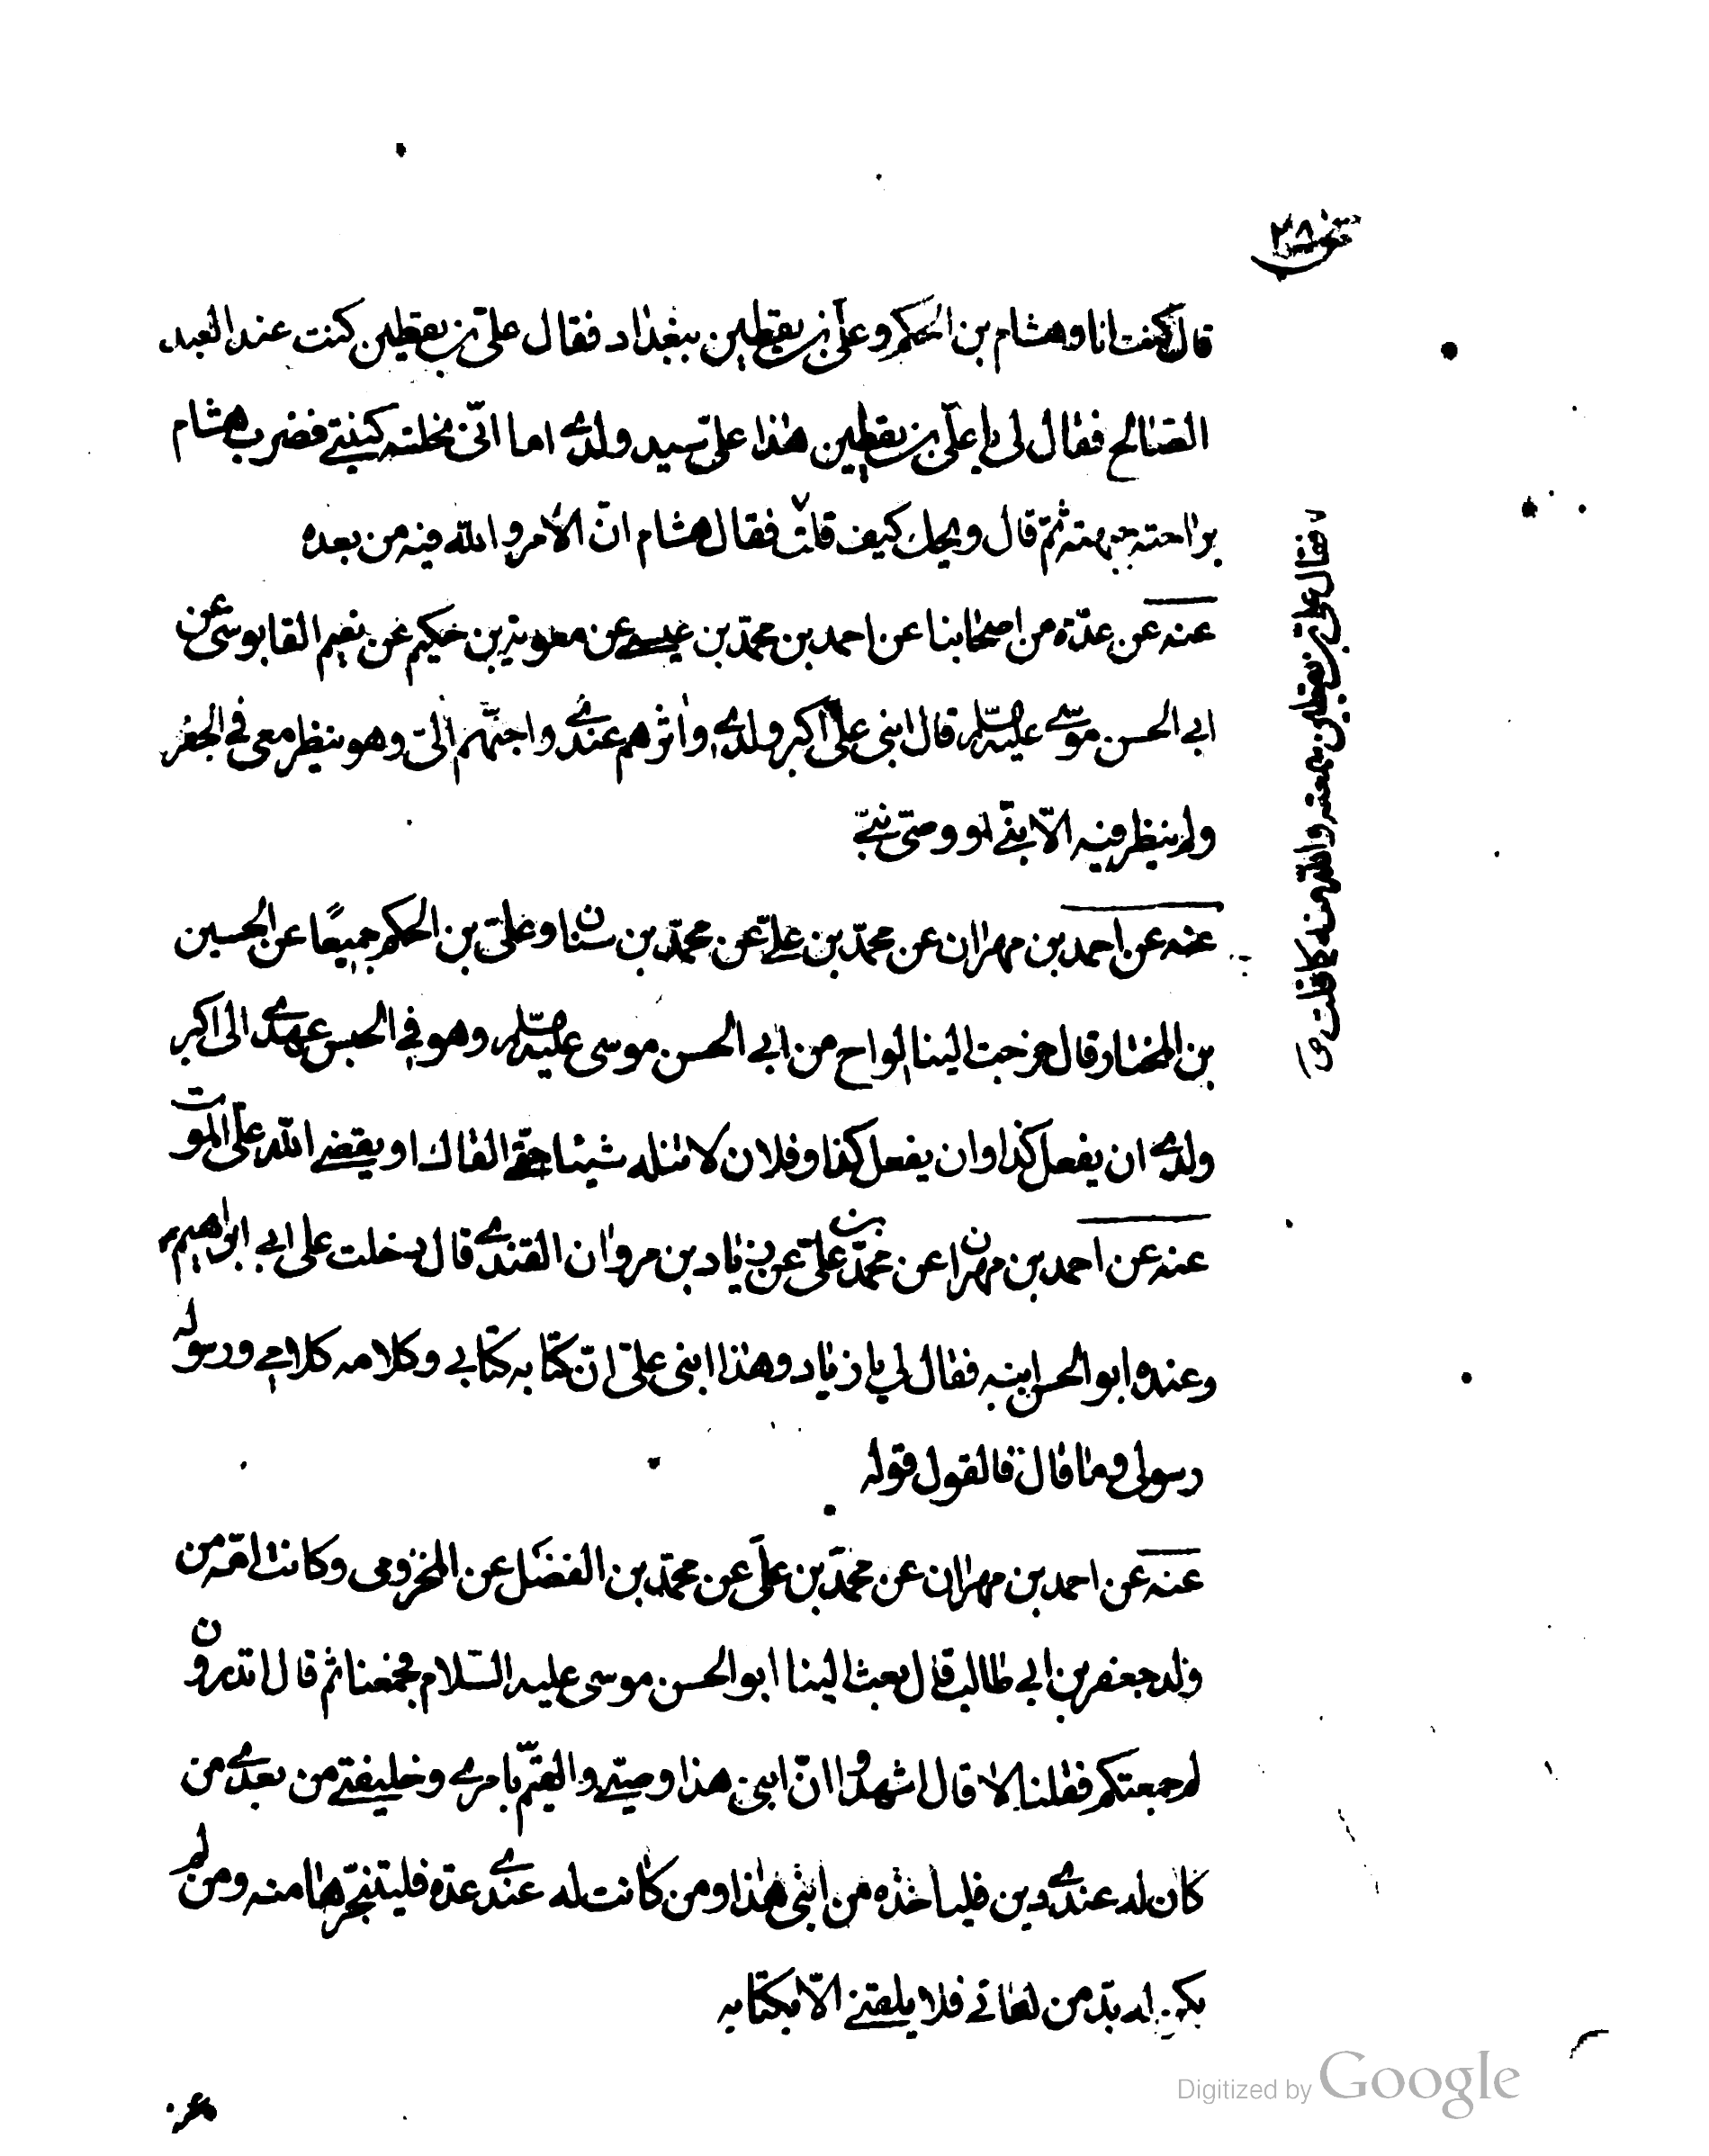 ٢٨
قال كنت انا وهشام بن الحكم وعلى بن يقطين ببغداد فقال على بن يقطين كنت عند العبد
الصالح فقال لى يا على بن يقطين هذا على سيد ولدى اما انى نحلته كنيتى فضرب هشام
براحته جبهته ثم قال ويحك كيف قلت فقال هشام ان الامر والله فيه من بعده
فقال على بن يقطين سمعته والله منه كما قلت
عنه عن عدة من اصحابنا عن احمد بن محمد بن عيسى عن معوية بن حكيم عن نعيم القابوسى عن
ابى الحسن موسى عليه السلام قال ابنى على اكبر ولدى واثرهم عندى واحبهم الىّ وهو ينظر معى فى الجفر
ولم ينظر فيه الا نبى او وصى نبى
عنه عن احمد بن مهران عن محمد بن على عن محمد بن سنان وعلى بن الحكم جميعًا عن الحسين
بن المختار قال خرجت الينا الواح من ابى الحسن موسى عليه السلام وهو فى الحبس عهدى الى اكبر
ولدى ان يفعل كذا وان يفعل كذا وفلان لا تنله شيئا حتى القاك او يقضى الله علىّ الموت
عنه عن احمد بن مهران عن محمد بن على عن زياد بن مروان القندى قال دخلت على ابى ابراهيم
وعنده ابو الحسن ابنه فقال لى يا زياد وهذا ابنى على انّ كتابه كتابى وكلامه كلامى ورسوله
رسولى وما قال فالقول قوله
عنه عن احمد بن مهران عن محمد بن على عن محمد بن الفضل عن المخزومى وكانت امه من
ولد جعفر بن ابى طالب قال بعث الينا ابو الحسن موسى عليه السلام فجمعنا ثم قال اتدرون
لم جمعتكم فقلنا لا قال اشهدوا انّ ابنى هذا وصيى والقيّم بامرى وخليفتى من بعدى من
كان له عندى دين فلياخذه من ابنى هذا ومن كانت له عندى عدة فليتنجزها منه ومن لم
يكن له بدّ من لقائى فلا يلقنى الّا بكتابه